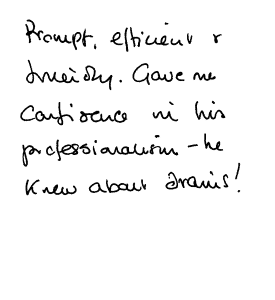 Prompt, efficient &
friendly. Gave me
confidence in his
professionalism - he
knew about drains!